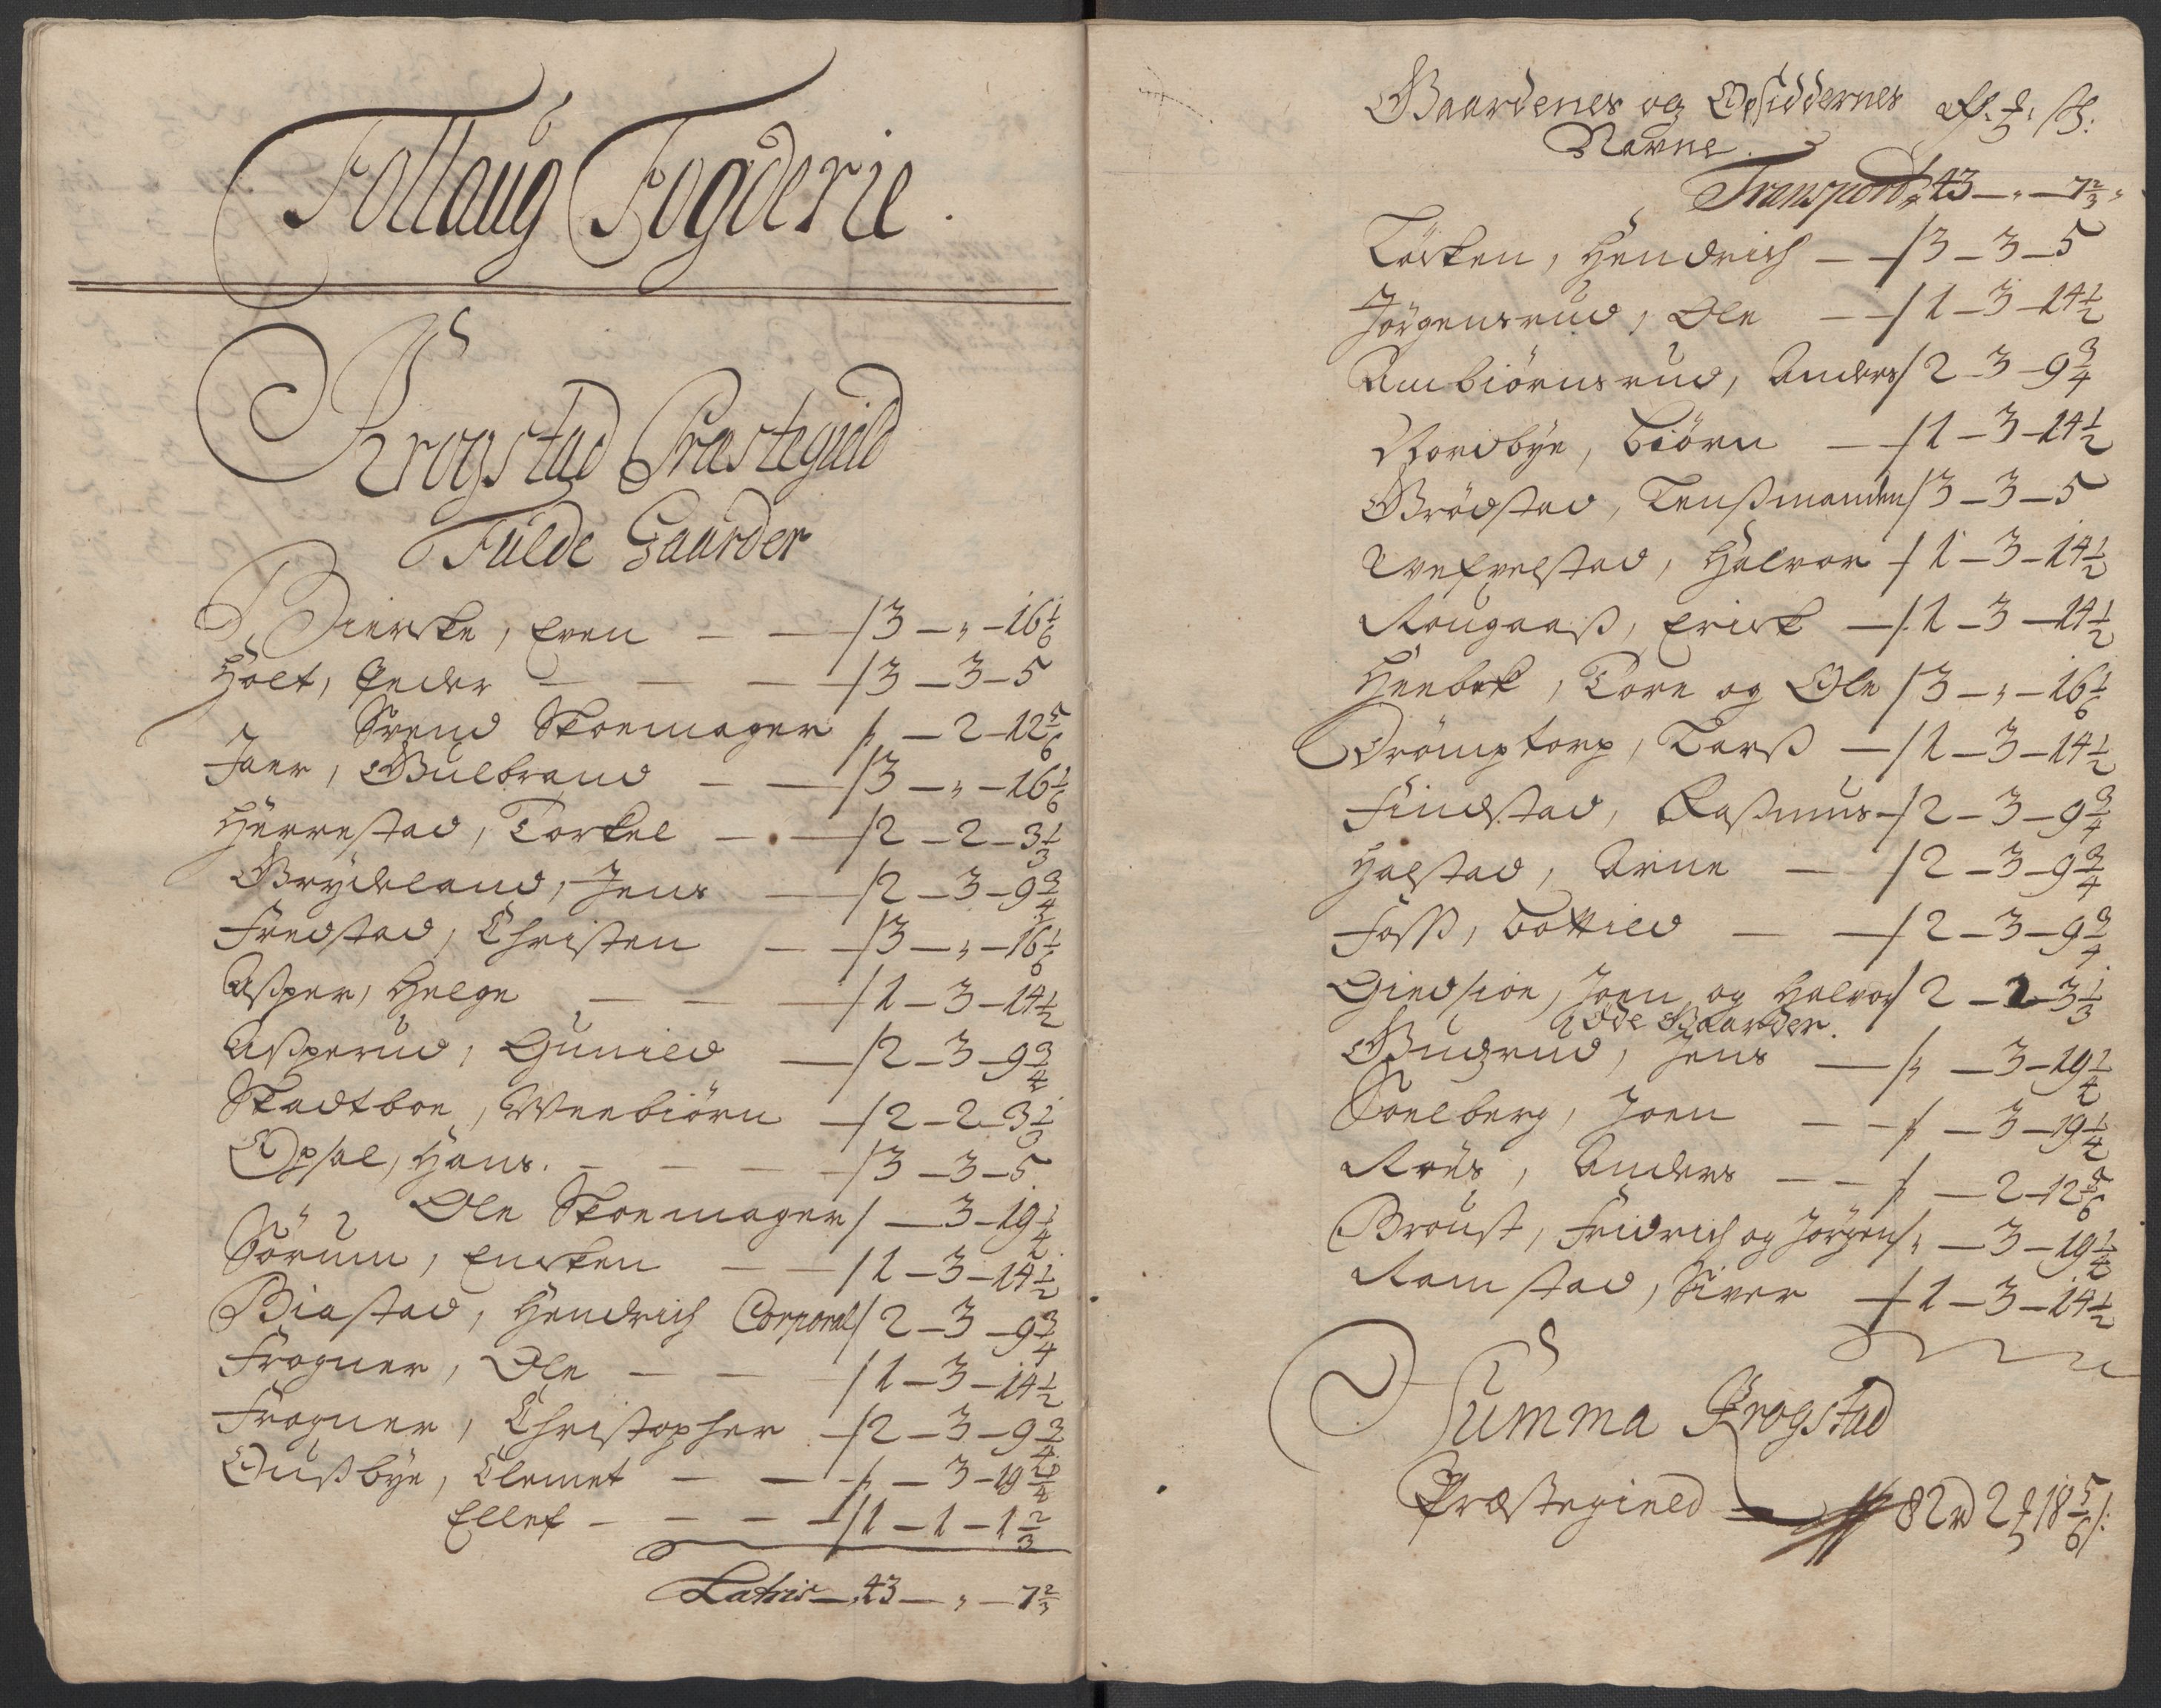 Follaug Fogderie.
Krogstad Præstegield
Fulde Gaarder
Bierke, Even — — 3 — „ — 16 1/6
Holt, Peder — — — 3 — 3 — 5
Svend Skoemager „ — 2 — 12 5/6
Jaer, Gulbrand — — 3 — „ — 16 1/6
Herrestad, Torkel — — 2 — 2 — 3 1/3
Grydeland, Jens — 2 — 3 — 9 3/4
Fredstad, Christen — — 3 — „ — 16 1/6
Asper, Helge — — — 1 — 3 — 14 1/2
Asperud, Gunild — 2 — 3 — 9 3/4
Skadtboe, Weebiörn — 2 — 2 — 3 1/3
Opsal, Hans. — — — 3 — 3 — 5
Ole Skoemager — 3 — 19 1/4
Sörum, Encken — — 1 — 3 — 14 1/2
Biastad, Hendrich Corporal 2 — 3 — 9 3/4
Frogner, Ole — — 1 — 3 — 14 1/2
Frogner, Christopher — 2 — 3 — 9 3/4
Ousbye, Clemet — — „ — 3 — 19 1/4
Ellef — — — 1 — 1 — 1 2/3
Latris — 43 — „ — 7 2/3
Gaardenes og Opsiddernes
Navne.
Transport 43 — „ — 7 2/3
Löcken, Hendrich — — 3 — 3 — 5
Jörgensrud, Ole — — 1 — 3 — 14 1/2
Ambiörnsrud, Anders 2 — 3 — 9 3/4
Nordbye, Biörn — — 1 — 3 — 14 1/2
Grödstad, Lensmanden 3 — 3 — 5
Halvor — 1 — 3 — 14 1/2
Rougaas, Erick — 1 — 3 — 14 1/2
Heebek, Tore og Ole 3 — „ — 16 1/6
Drömptorp, Lars — 1 — 3 — 14 1/2
Findstad, Rasmus — 2 — 3 — 9 3/4
Halstad, Arne — 2 — 3 — 9 3/4
Foss, Bottild — — 2 — 3 — 9 3/4
Giedsioe, Joen og Halvor 2 — 2 — 3 1/3
Øde Gaarder.
Gudrud, Jens — „ — 3 — 19 1/4
Soelberg, Joen — — „ — 3 — 19 1/4
Röes, Anders — — „ — 2 — 12 5/6
Broust, Fridrich og Jörgen „ — 3 — 19 1/4
Ramstad, Siver — 1 — 3 — 14 1/2
Summa Krogstad
Præstegield — 82 rd 2 18 5/6